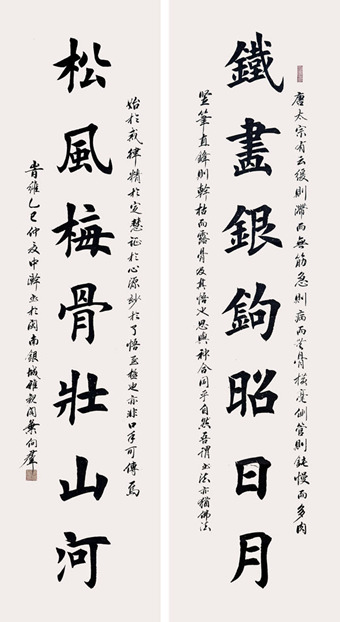 鐵畫銀鉤昭日月
唐太宗有云緩則滯而無筋急則病而無骨橫毫側管則鈍慢而多肉
豎筆直鋒則幹枯而露骨及其悟也思與神合同乎自然吾謂書法亦猶佛法
松風梅骨壯山河
始於戒律精於定慧證於心源妙於了悟至極也亦非口手可傳焉
歲乙巳仲夏中澣書於閩南銀城雅叙閣葉向群